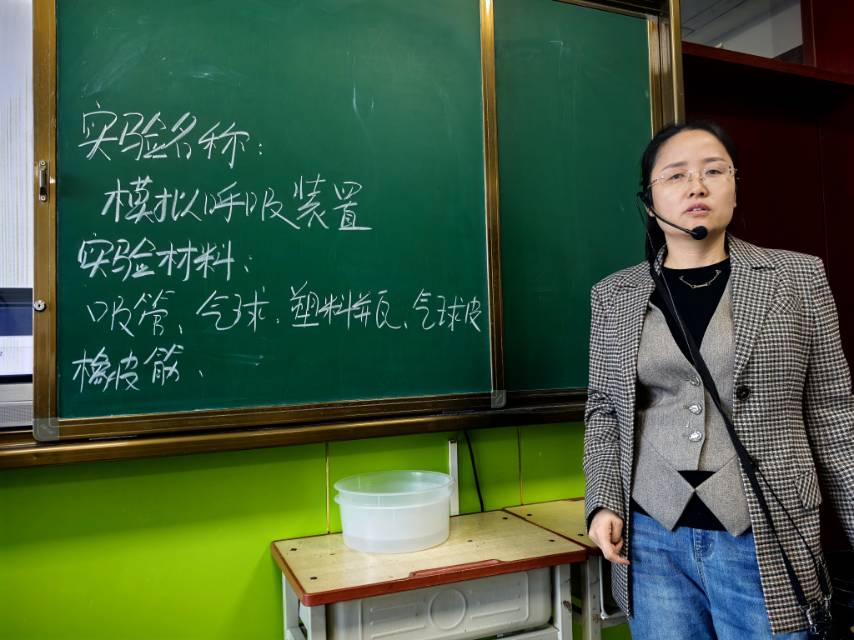 实验名称：
模拟呼吸装置
实验材料：
吸管、气球、塑料瓶、气球皮
橡皮筋、